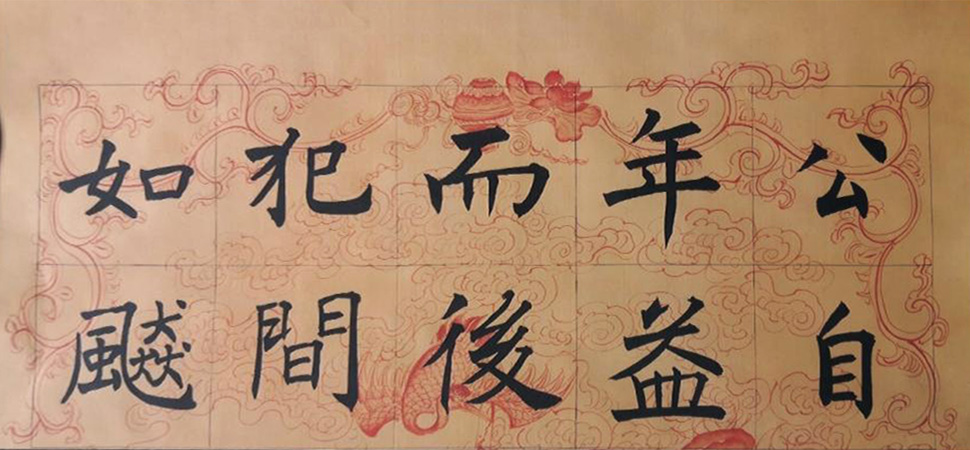 公自
年益
而後
犯間
如飇